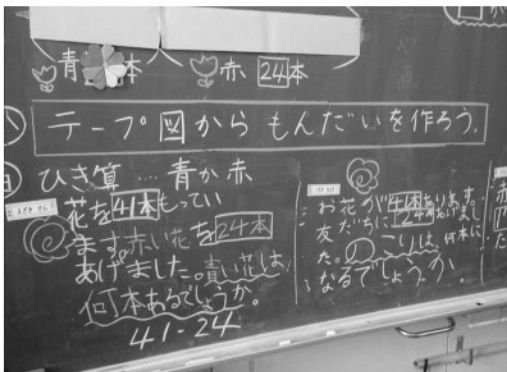 青 本 赤 24本
テープ図から もんだいを作ろう。
ひき算 … 青か赤
花を41本もってい
ます。赤い花を24本
あげました。青い花は、
何本あるでしょうか。
41-24
お花が41本あります。
友だちに24本あげまし
た。のこりは、何本に
なるでしょうか。
赤